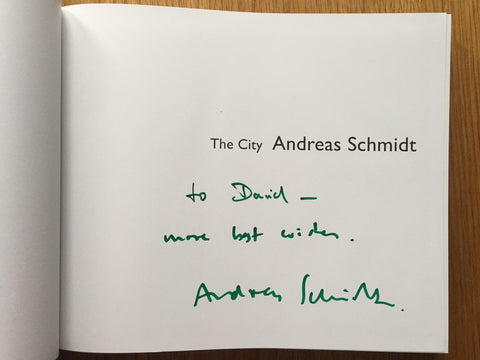 The City Andreas Schmidt
to David –
more best wishes.
Andreas Schmidt.